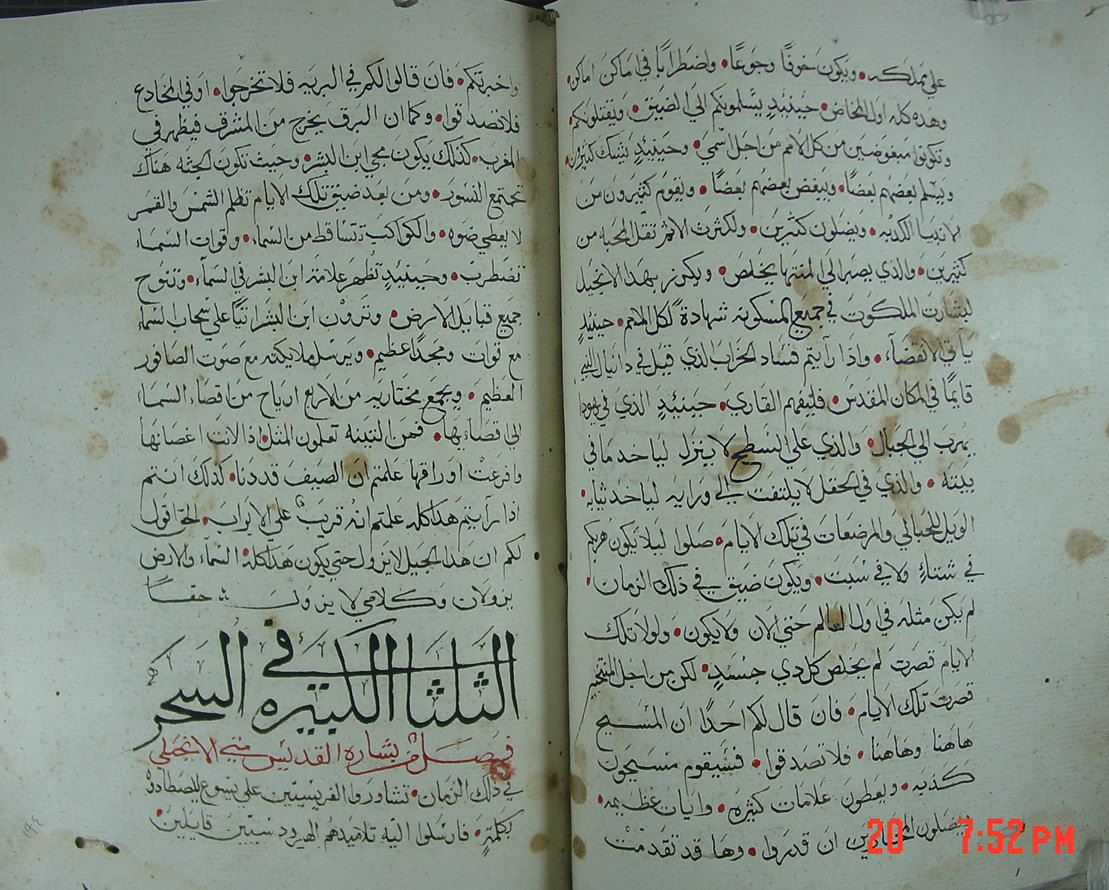 علي مملكه • ويكون خوفًا وجوعًا • واضطرابًا في اماكن اماكن •
وهذه كله اول المخاض • حينيذٍ يسلمونكم الي الضيق • ويقتلونكم •
وتكونوا مبغوضين من كل الامم من اجل اسمي • وحينيذٍ تشك كثيرون •
ويسلم بعضهم بعضًا • ويبغض بعضهم بعضًا • ويقوم كثيرون من
الانبيا الكدبه • ويضلون كثيرين • ولكثرت الاثم تقل المحبه من
كثيرين • والذي يصبر الي المنتها يخلص • ويكرز بهذا الانجيل
لبشارت الملكوت في جميع المسكونه شهادة لكل الامم • حينيذٍ
ياتي الانقضاء • واذا رايتم فساد الخراب الذي قيل في دانيال النبي
قايمًا في المكان المقدس • فليفهم القاري • حينيذٍ الذي في يهودا
يهرب الي الجبال • والذي علي السطح لا ينزل لياخد ما في
بيته • والذي في الحقل لا يلتفت الي ورايه لياخد ثيابه •
الويل للحبالي والمرضعات في تلك الايام • صلوا ليلا يكون هربكم
في شتاءٍ ولا في سبت • ويكون ضيق في ذلك الزمان •
لم يكن مثله في اول العالم حتي الان ولا يكون • ولولا تلك
الايام قصرت لم يخلص كل دي جسدٍ • لكن من اجل
قصرت تلك الايام • فان قال لكم احدًا ان المسيح
هاهنا وهاهنا • فلا تصدقوا • فسيقوم مسيحيون
كدبه • ويعطون علامات كثيره • وايات عظيمه •
ويضلون المختارين ان قدروا • وها قد تقدمت
واخبرتكم • فان قالوا لكم في البريه فلا تخرجوا • او في المخادع
فلا تصدقوا • وكما ان البرق يخرج من المشرق فيظهر في
المغرب • كذلك يكون مجي ابن البشر • وحيث تكون الجثه هناك
تجتمع النسور • ومن بعد ضيق تلك الايام تظلم الشمس والقمر
لا يعطي ضوه • والكواكب تتساقط من السماء • وقوات السماء
تضطرب • وحينيذٍ تظهر علامة ابن البشر في السماء • وتنوح
جميع قبايل الارض • وترون ابن البشر اتيًا علي سحاب السماء
مع قوات ومجدًا عظيم • ويرسل ملايكته مع صوت الصافور
العظيم • ويجمع مختاريه من الاربع ارياح من اقصاء السماء
الي اقصايها • فمن التينه تعلمون المثل اذا لانت اغصانها
وافرعت اوراقها علمتم ان الصيف قد دنا • كذلك انتم
اذا رايتم هذا كله علمتم انه قريب علي الابواب • الحق اقول
لكم ان هذا الجيل لا يزول حتي يكون هذا كله • السماء والارض
يزولان وكلامي لا يزول حقًا
الثلثا الكبيره في السحر
فصل من بشارة القديس متي الانجيلي
في ذلك الزمان • تشاوروا الفريسيين علي يسوع ليصطادوه
بكلمةٍ • فارسلوا اليه تلاميدهم الهيرودسيين قايلين •
20 7:52 PM